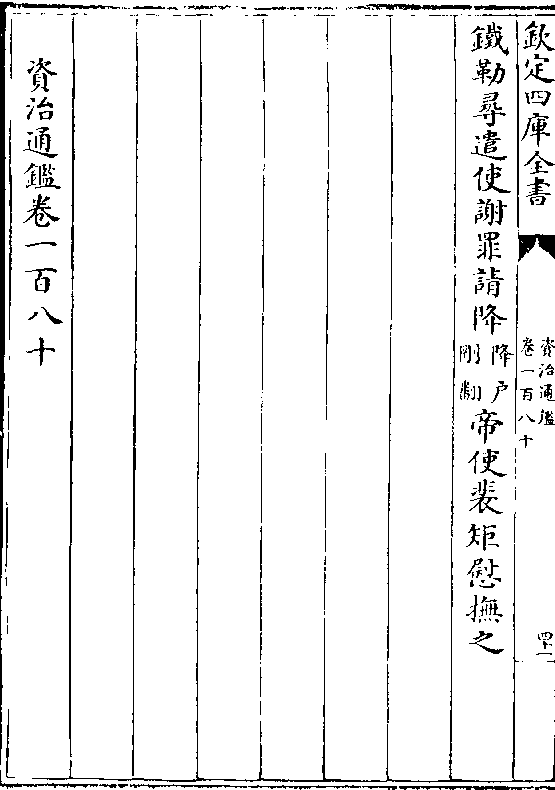 欽定四庫全書
資治通鑑
卷一百八十
四十一
鐵勒尋遣使謝罪請降降戶剛翻帝使裴矩慰撫之
資治通鑑卷一百八十